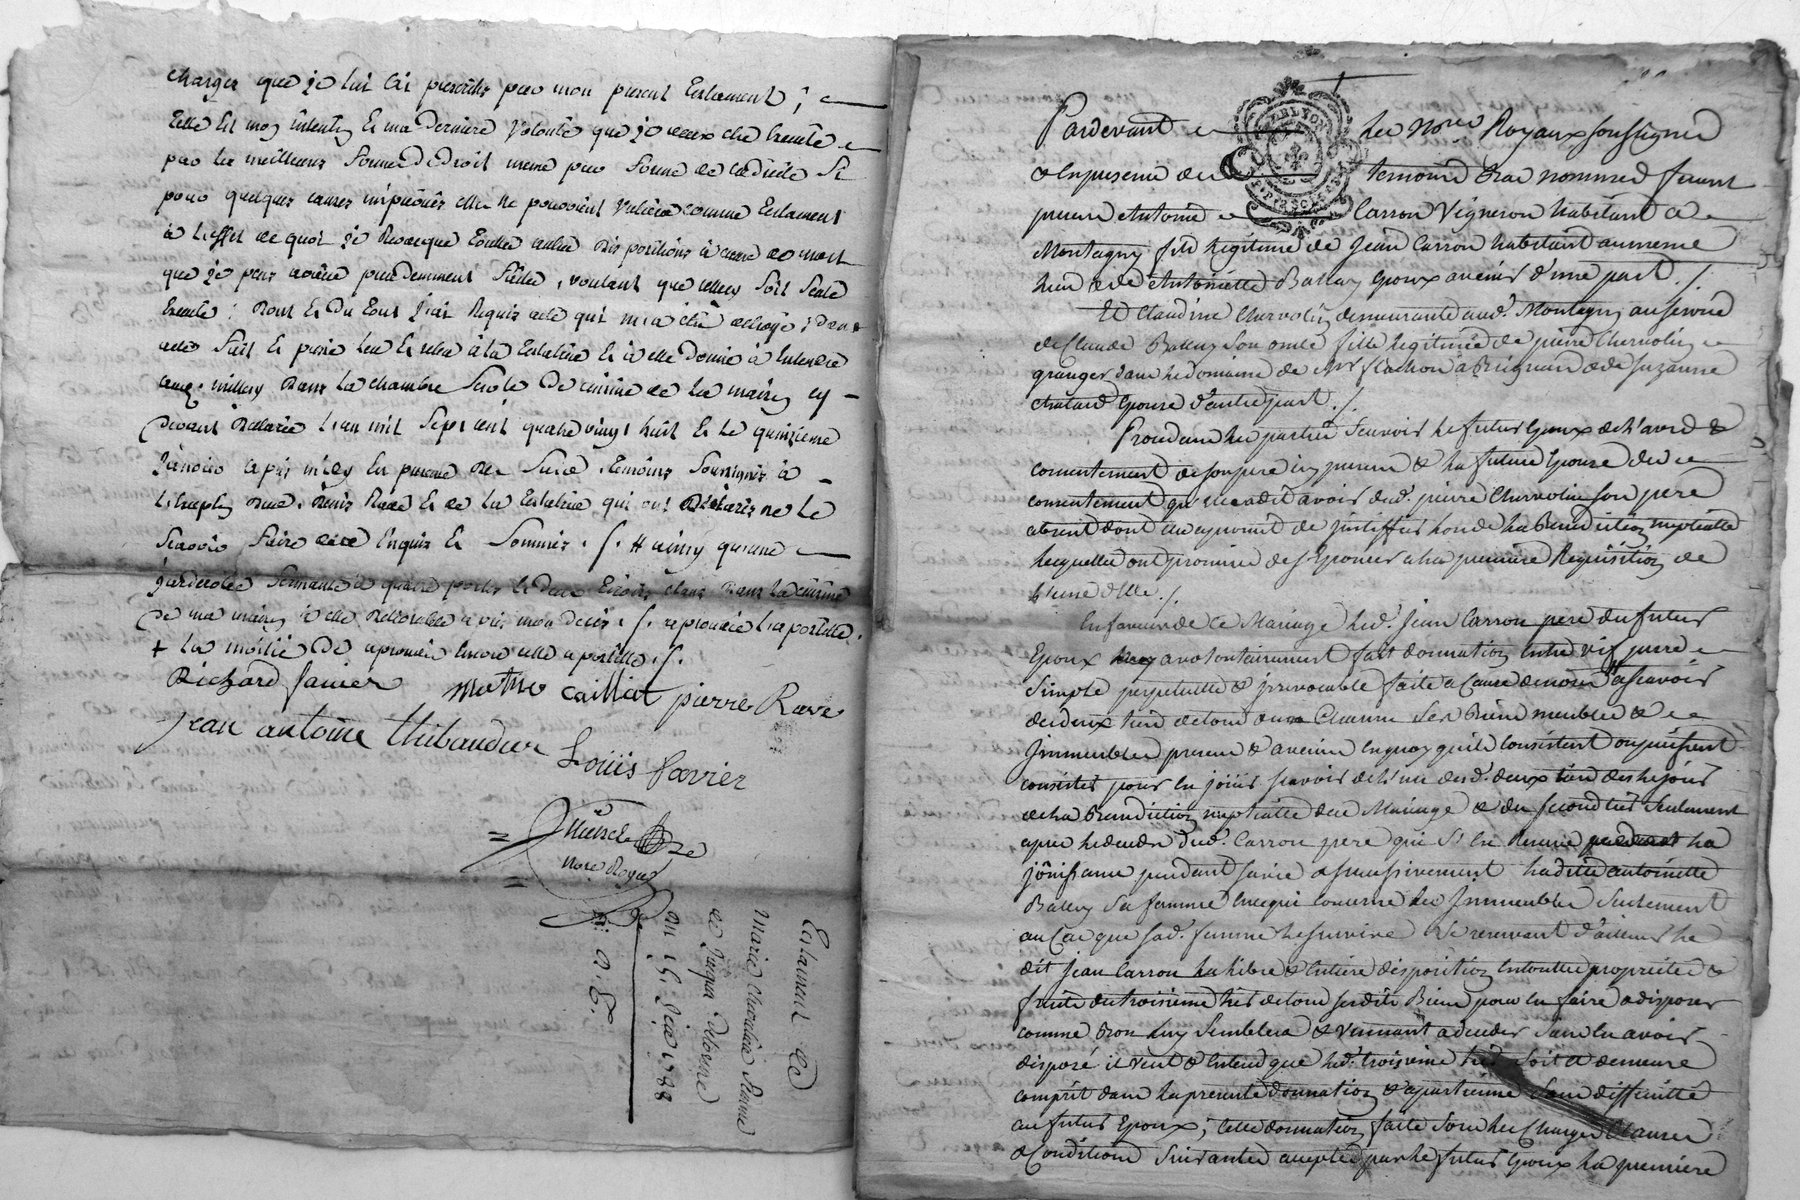 charges que je lui ai prescrites par mon present testament ;
telle est mon intention et ma derniere volonté que je veux etre executé
par les meilleurs formes de droit meme par forme de codicile si
pour quelques causes imprévües elle ne pouvoient valoir comme testament
à l'effet de quoi je revoque toutes autres dispositions à cause de mort
que je peus avoir precedemment faittes, voulant que celle cy soit seule
executé ; dont et du tout j'ai requis acte qui m'a été octroyé ; dont
acte fait et passé leu et releu à la testatrice et à elle donné à entendre
à millery dans la chambre servant de cuisine de la maison cy
devant declarée l'an mil sept cent quatre vingt huit et le quinzieme
janvier après midy en presence des susd. temoins soussignés à
l'exception dud. Denis Rave et de la testatrice qui ont déclarés ne le
scavoir faire de ce enquis et sommés ./. # ainsy qu'une
garderobe fermante à quatre portes et deux tiroirs etant dans la cuisine
de ma maison à elle delivrable après mon décès ./. approuvé l'apostille.
+ la moitié de approuvé encore cette apostille ./.
Richard Janier Mathie Caillat pierre Rave
jean antoine thibaudier
Louis favier
Nore Royal
Testament de
Marie Chevalier femme
de Jaques Delorme
du 15. Janv. 1788
Pardevant les Nores Royaux soussignés
& en presence des temoins bas nommés furent
presens Antoine Carron Vigneron habitant à
Montagny fils legitime de Jean Carron habitant au meme
lieu & de Antoinette Ballay Epoux avenir d'une part ./.
Et Claudine Chervolin demeurante aud. Montagny au service
de Claude Ballay son oncle fille legitime de pierre Chervolin
granger dans le domaine de Mr flachon à Brignais & de Suzanne
Chatard Epouse d'autre part ./.
Procedans les parties scavoir le futur Epoux de l'avis &
consentement de son pere icy present & la future Epouse de
consentement qu'elle a dit avoir dud. pierre Chervolin son pere
absent dont elle a promis de justiffier lors de la Benediction nuptialle
lesquelles ont promis de s'Epouser à la premiere Requisition de
l'une d'elle ./.
En faveur de ce Mariage led. Jean Carron pere du futur
Epoux a volontairement fait donnation entre vif pure
simple perpetuelle & irrevocable faite à Cause de noces Ascavoir
des deux tiers de tous un Chacun ses Biens meubles &
Immeubles presens & avenir en quoy qu'ils Consistent ou puissent
consister pour en joüir scavoir de l'un desd. deux tiers dès le jour
de la Benediction nuptialle dud. Mariage & du second tiers seulement
après le decès dud. Carron pere qui s'en Reserve la
joüissance pendant sa vie & successivement laditte antoinette
Ballay sa femme en ce qui concerne les Immeubles seulement
au Cas que sad. femme le survive se reservant d'ailleurs le
dit Jean Carron la libre & entiere disposition en toutte propriété &
fruits du troisieme tiers de tous sesdits Biens pour en faire & disposer
comme bon luy semblera & venant à deceder sans en avoir
disposé il veut & entend que led. troisieme tiers soit & demeure
compris dans la presente donnation & apartienne sans difficulté
au futur Epoux ; cette donnation faite sous les Charges Clauses
& Conditions suivantes acceptées par le futur Epoux la premiere